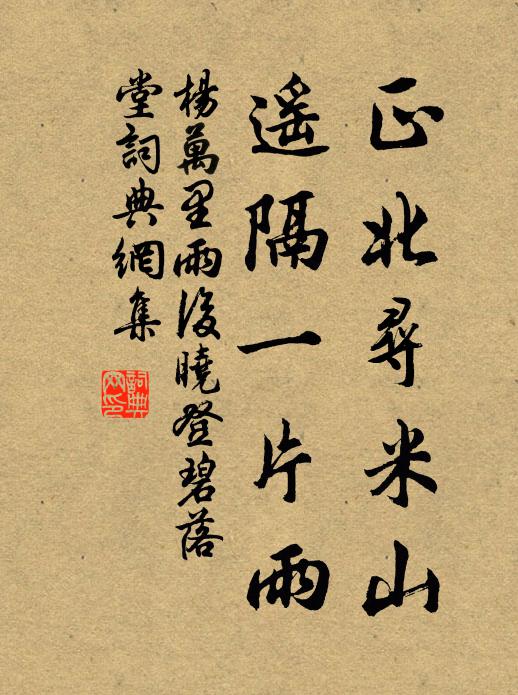 正北尋米山
遥隔一片雨
楊萬里雨後曉登碧落
堂詞典網集
詞典
网印